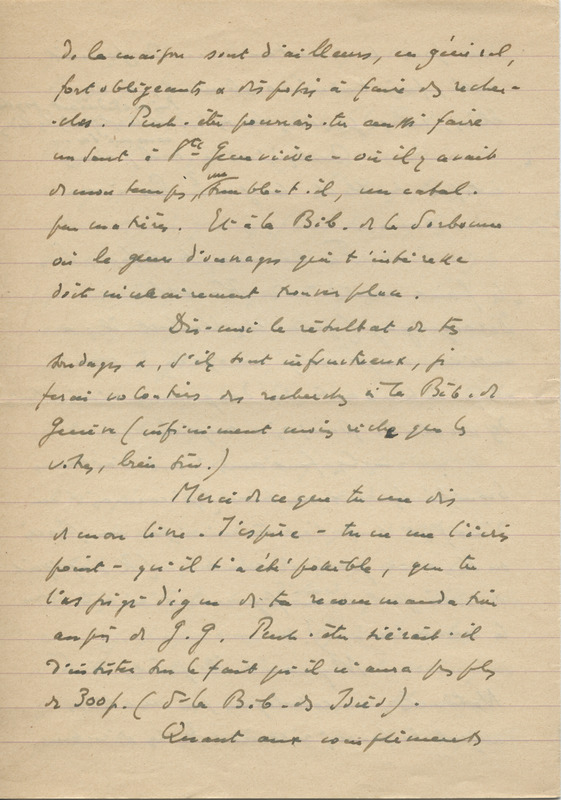 de la maison sont d'ailleurs, en général,
fort obligeants & disposés à faire des recher-
-ches. Peut-être pourrais-tu aussi faire
un saut à Ste Geneviève - où il y avait
de mon temps, me semble-t-il, un catal.
par matières. Et à la Bib. de la Sorbonne
où le genre d'ouvrages qui t'intéresse
doit nécessairement trouver place.
Dis-moi le résultat de tes
sondages &, s'ils sont infructueux, je
ferai volontiers des recherches à la Bib. de
Genève (infiniment moins riche que les
vôtres, bien sûr.)
Merci de ce que tu me dis
de mon livre. J'espère - tu ne me l'écris
point - qu'il t'a été possible, que tu
l'as jugé digne de ta recommandation
auprès de G.G. Peut-être siérait-il
d'insister sur le fait qu'il n'aura pas plus
de 300 p. ( la Bib. des Idées).
Quant aux compliments